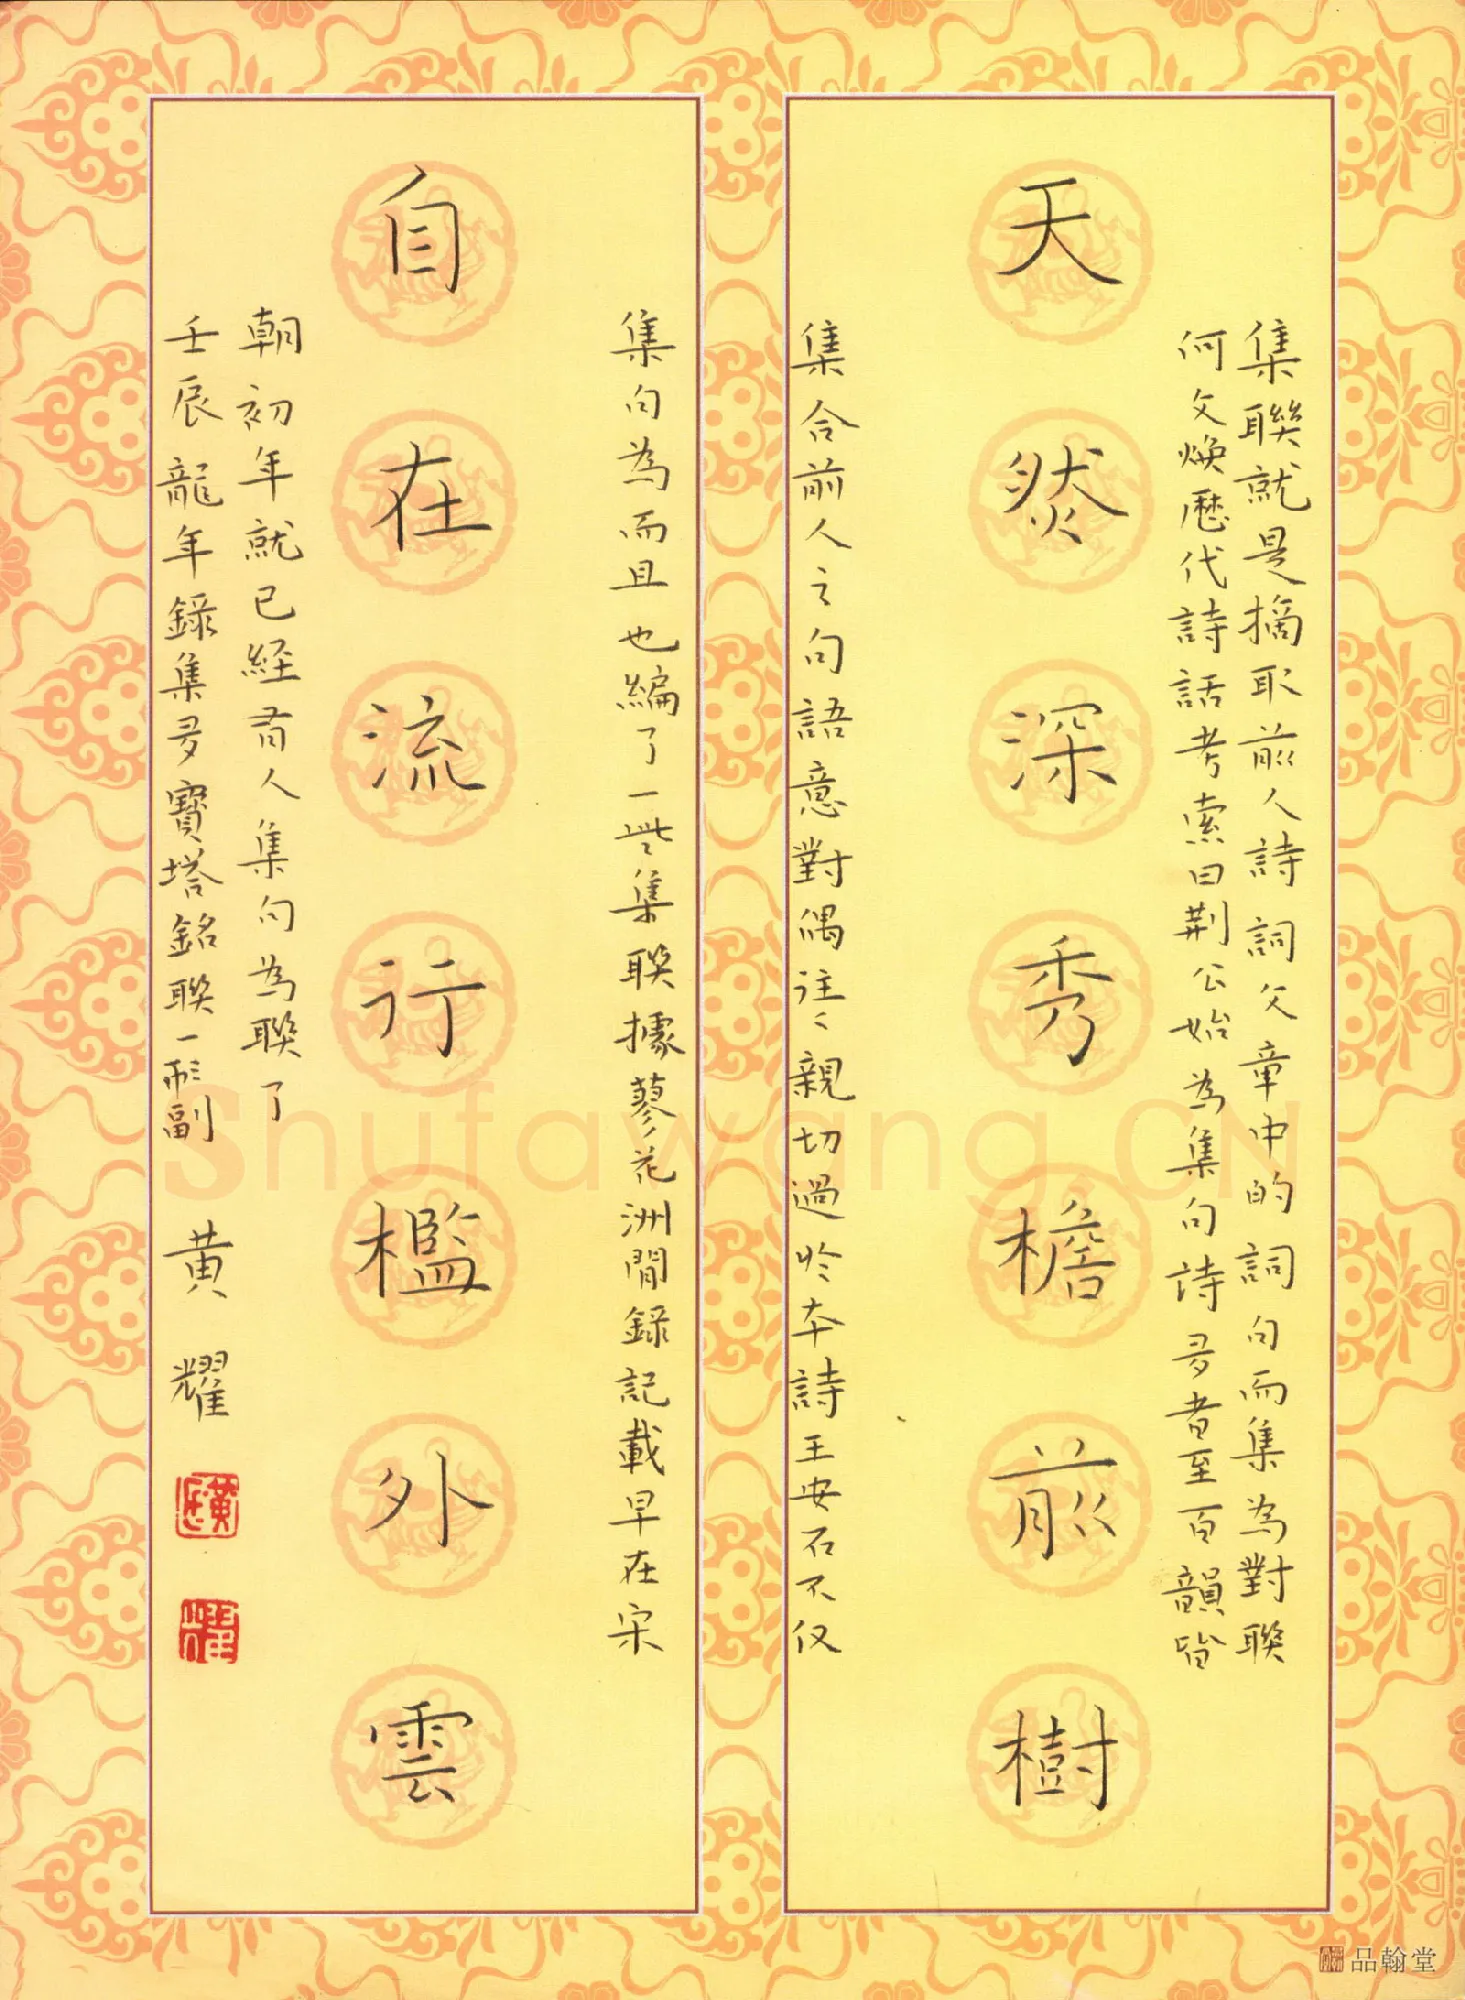 天然深秀檐前樹
集聯就是摘取前人詩詞文章中的詞句而集為對聯
何文煥歷代詩話考索曰荆公始為集句詩多者至百韻皆
集合前人之句語意對偶往〻親切過於本詩王安石不仅
自在流行檻外雲
集句為而且也編了一些集聯據蓼花洲閒錄記載早在宋
朝初年就已經有人集句為聯了
壬辰龍年錄集多寶塔銘聯一副
黄耀
Shufawang.CN
品翰堂